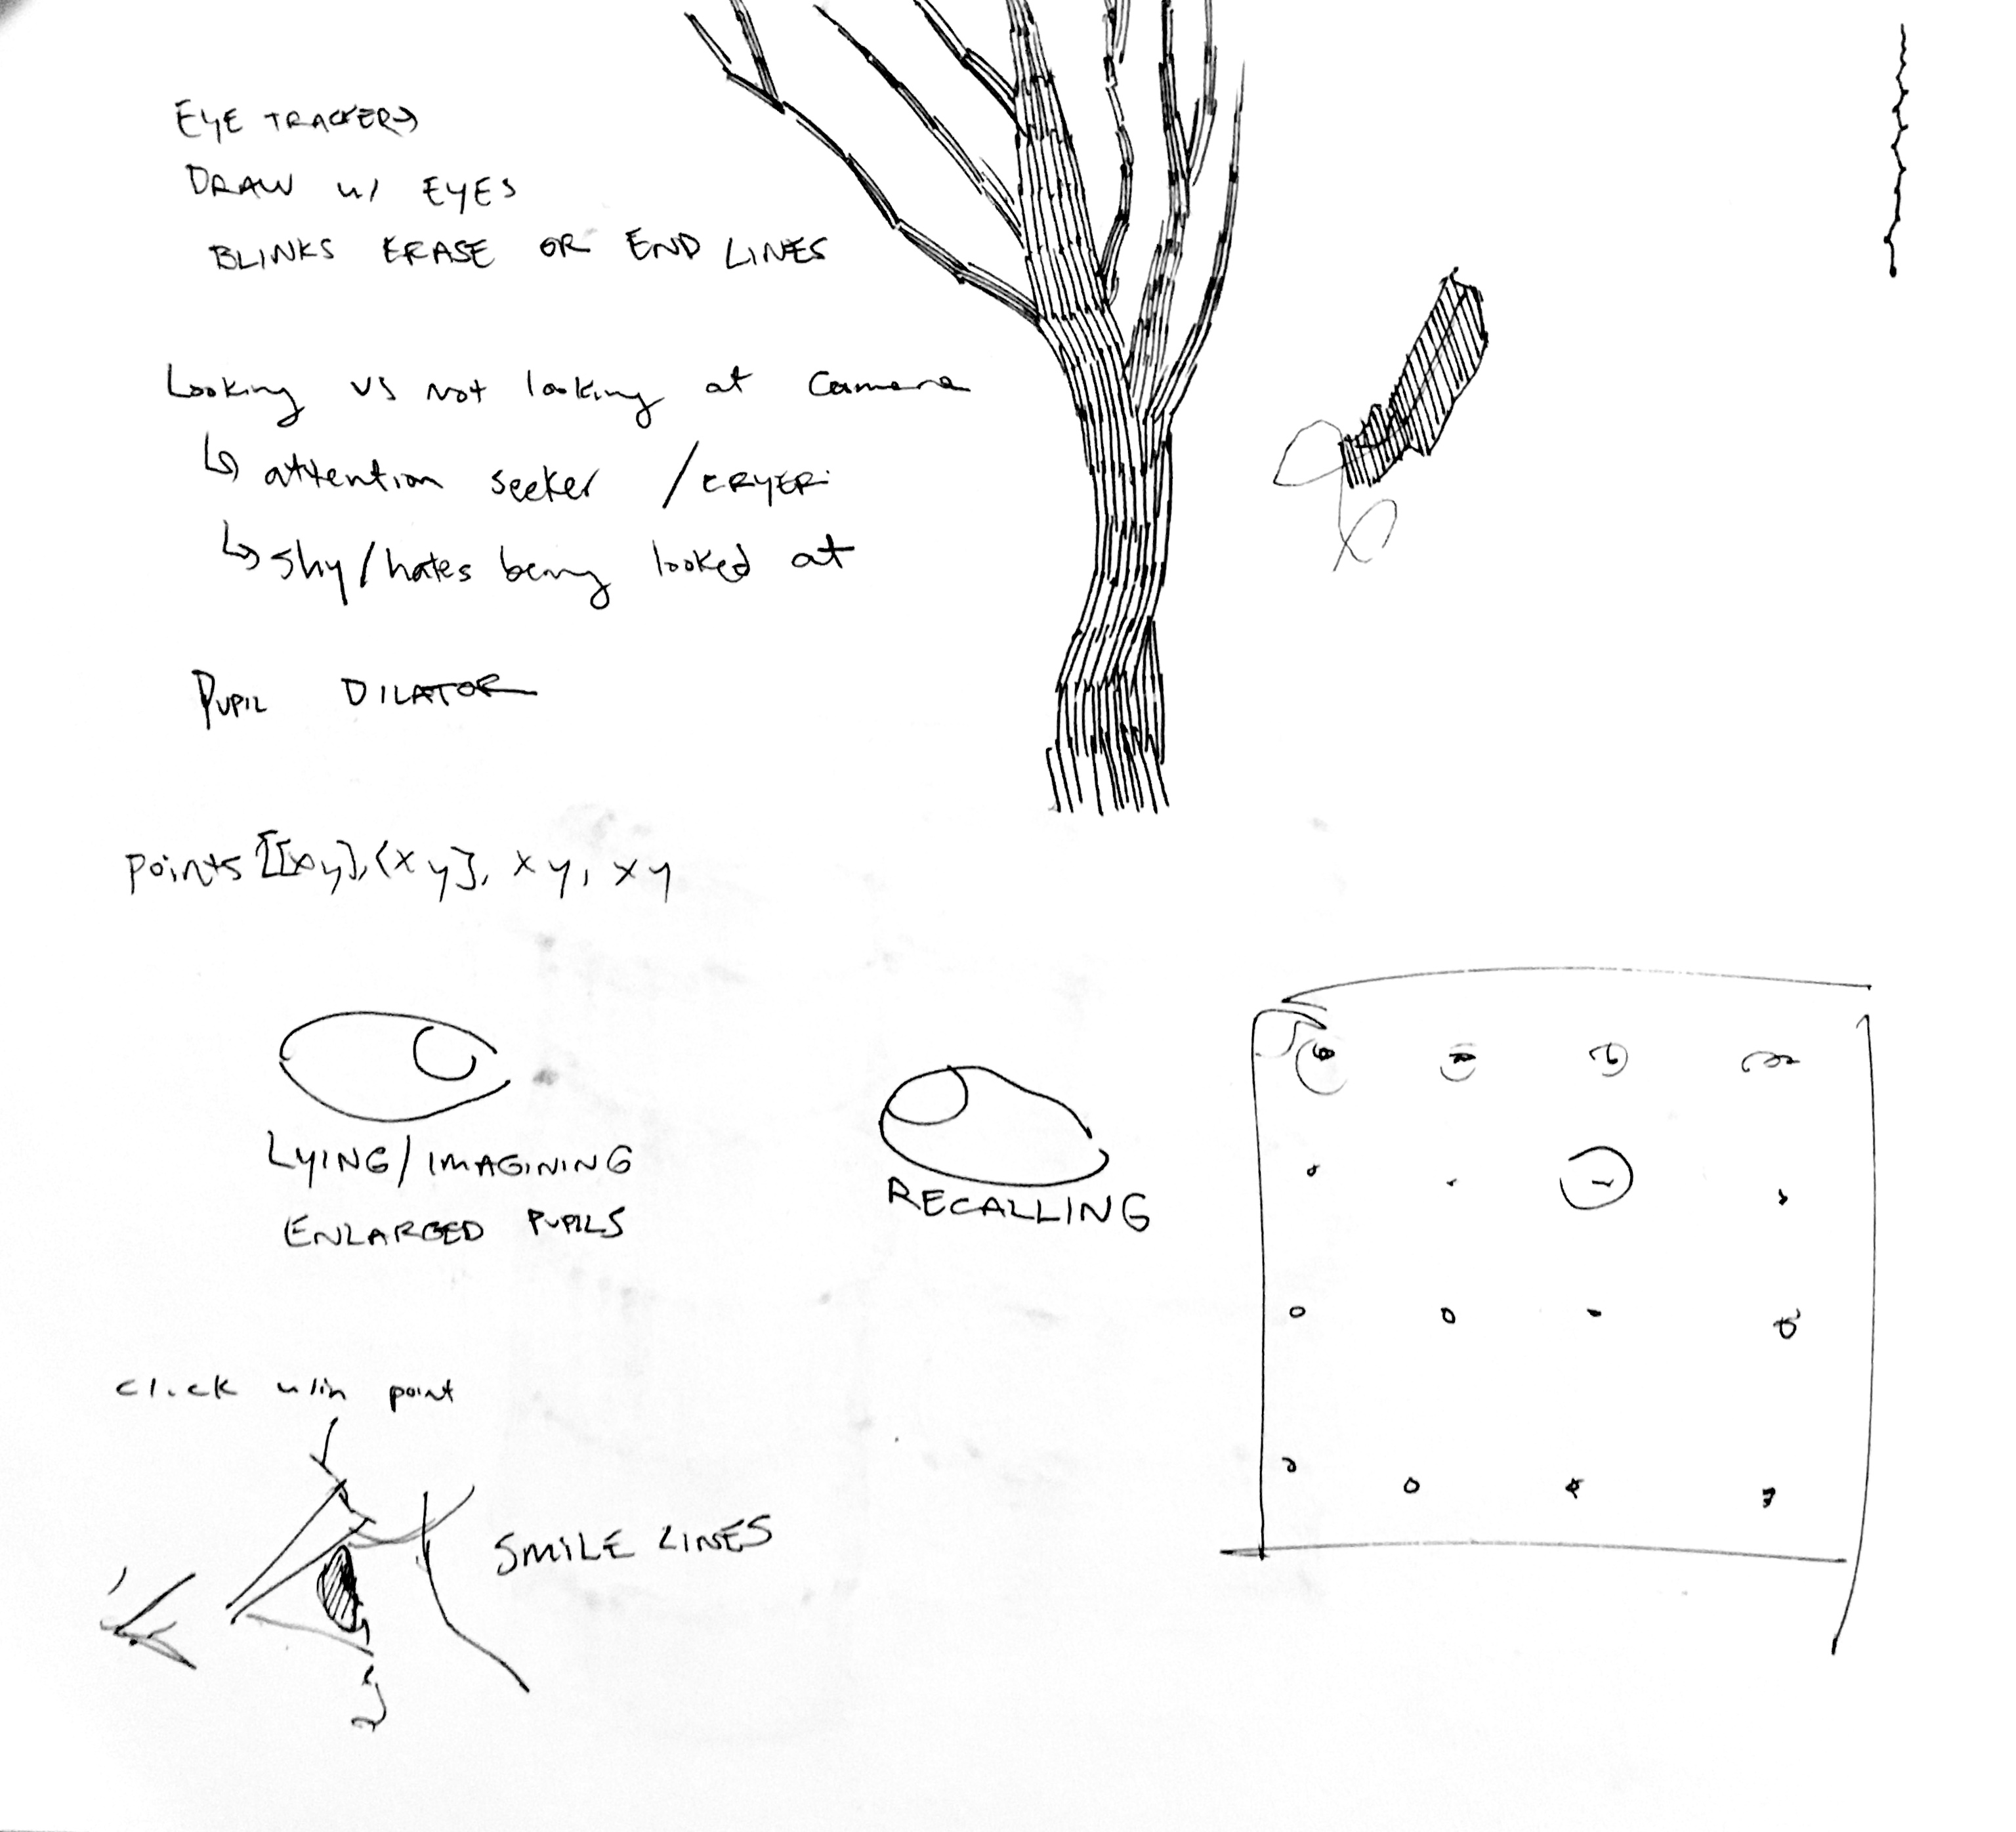 EYE TRACKER
DRAW w/ EYES
BLINKS ERASE OR END LINES
Looking vs Not looking at Camera
attention seeker / CRYER
shy/hates being looked at
PUPIL DILATOR
points [[xy],(xy], xy, xy
LYING/IMAGINING
ENLARGED PUPILS
RECALLING
click w/in point
SMILE LINES